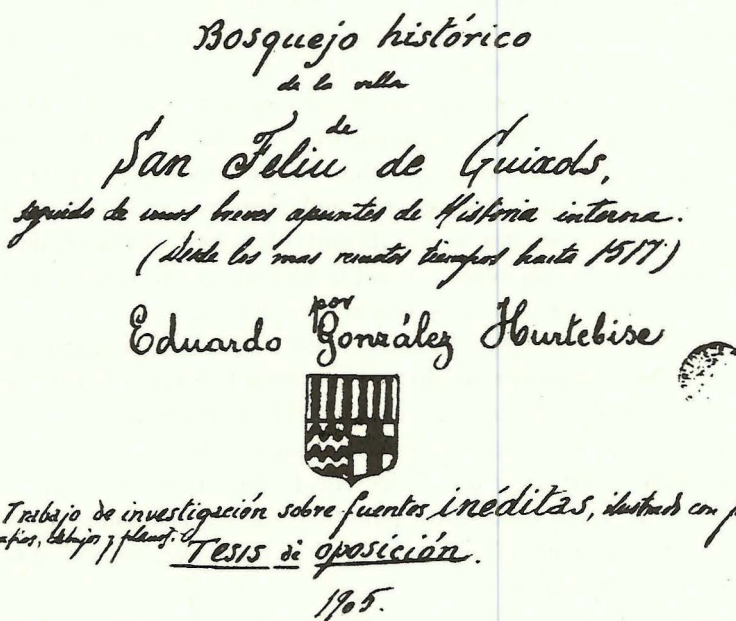 Bosquejo histórico
de la villa
de
San Feliu de Guixols,
seguido de unos breves apuntes de Historia interna.
(Desde los mas remotos tiempos hasta 1517)
por
Eduardo González Hurtebise
Trabajo de investigación sobre fuentes inéditas, ilustrado con
dibujos y planos.
Tesis de oposición.
1905.